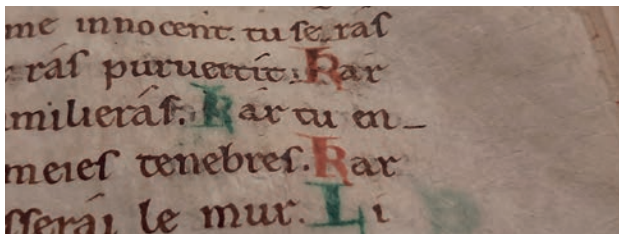 me innocent. tu serras
ras puruertit. Kar
milieras. Kar tu en_
meies tenebres. Kar
sserai le mur. Li